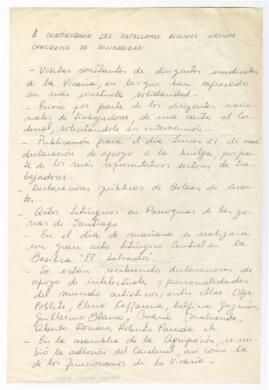 A CONTINUACIÓN LES DETALLAMOS ALGUNOS HECHOS
CONCRETOS DE SOLIDARIDAD
- Visitas constantes de dirigentes sindicales
a la Vicaría, en la que han expresado
su más irrestricta solidaridad.
- Envío por parte de los dirigentes nacio-
nales de trabajadores, de una carta al Car-
denal, solicitándole su intervención.
- Publicación para el día lunes 21 de una
declaración de apoyo a la huelga, por par-
te de los más representativos sectores de tra-
bajadores.
- Declaraciones públicas de
- Actos litúrgicos en Parroquias de las zo-
nas de Santiago.
En el día de mañana se realizará
un gran acto litúrgico Central en la
Basílica "El Salvador"
- Se están recibiendo declaraciones de
apoyo de intelectuales y personalidades
del mundo artístico, entre ellas Olga
Poblete, Elena Caffarena, Delfina Guzmán,
Guillermo Blanco, María Maluenda,
Roberto Parada etc.
- En la asamblea de la Agrupación, se reci-
bió la adhesión del Cardenal, así como la
de los funcionarios de la Vicaría.